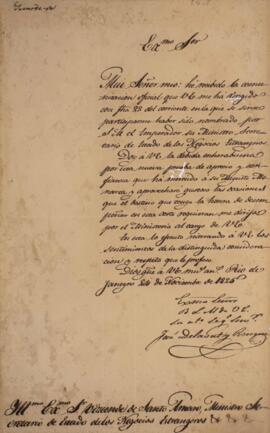 Exmo Sor
Muy Señor mio: he recibido la comu-
nicacion oficial que V.E. me ha dirigido
con fha 23 del corriente en la que se sirve
participarme haber sido nombrado por
S.M. el Emperador su Ministro Secre-
tario de Estado de los Negocios Estrangeros
Doy a V.E. la debida enhorabuena
por esa nueva prueba de aprecio y con-
fianza que ha merecido a su Augusto Mo-
narca y aprovechare gustoso las ocasiones
que el destino que tengo la honra de desem-
peñar en esta corte requieran me dirija
por el Ministerio al cargo de V.E.
los sentimientos de la distinguida considera-
cion y respeto que le profesa.
Dios gũe a V.E. ms. as. Rio de
Janeyro 24 de Noviembre de 1825
Exmo Señor
B. L. M. de V.E.
Illmo Exmo Sr Vizconde de Santo Amaro, Ministro Se-
cretario de Estado de los Negocios Estrangeros